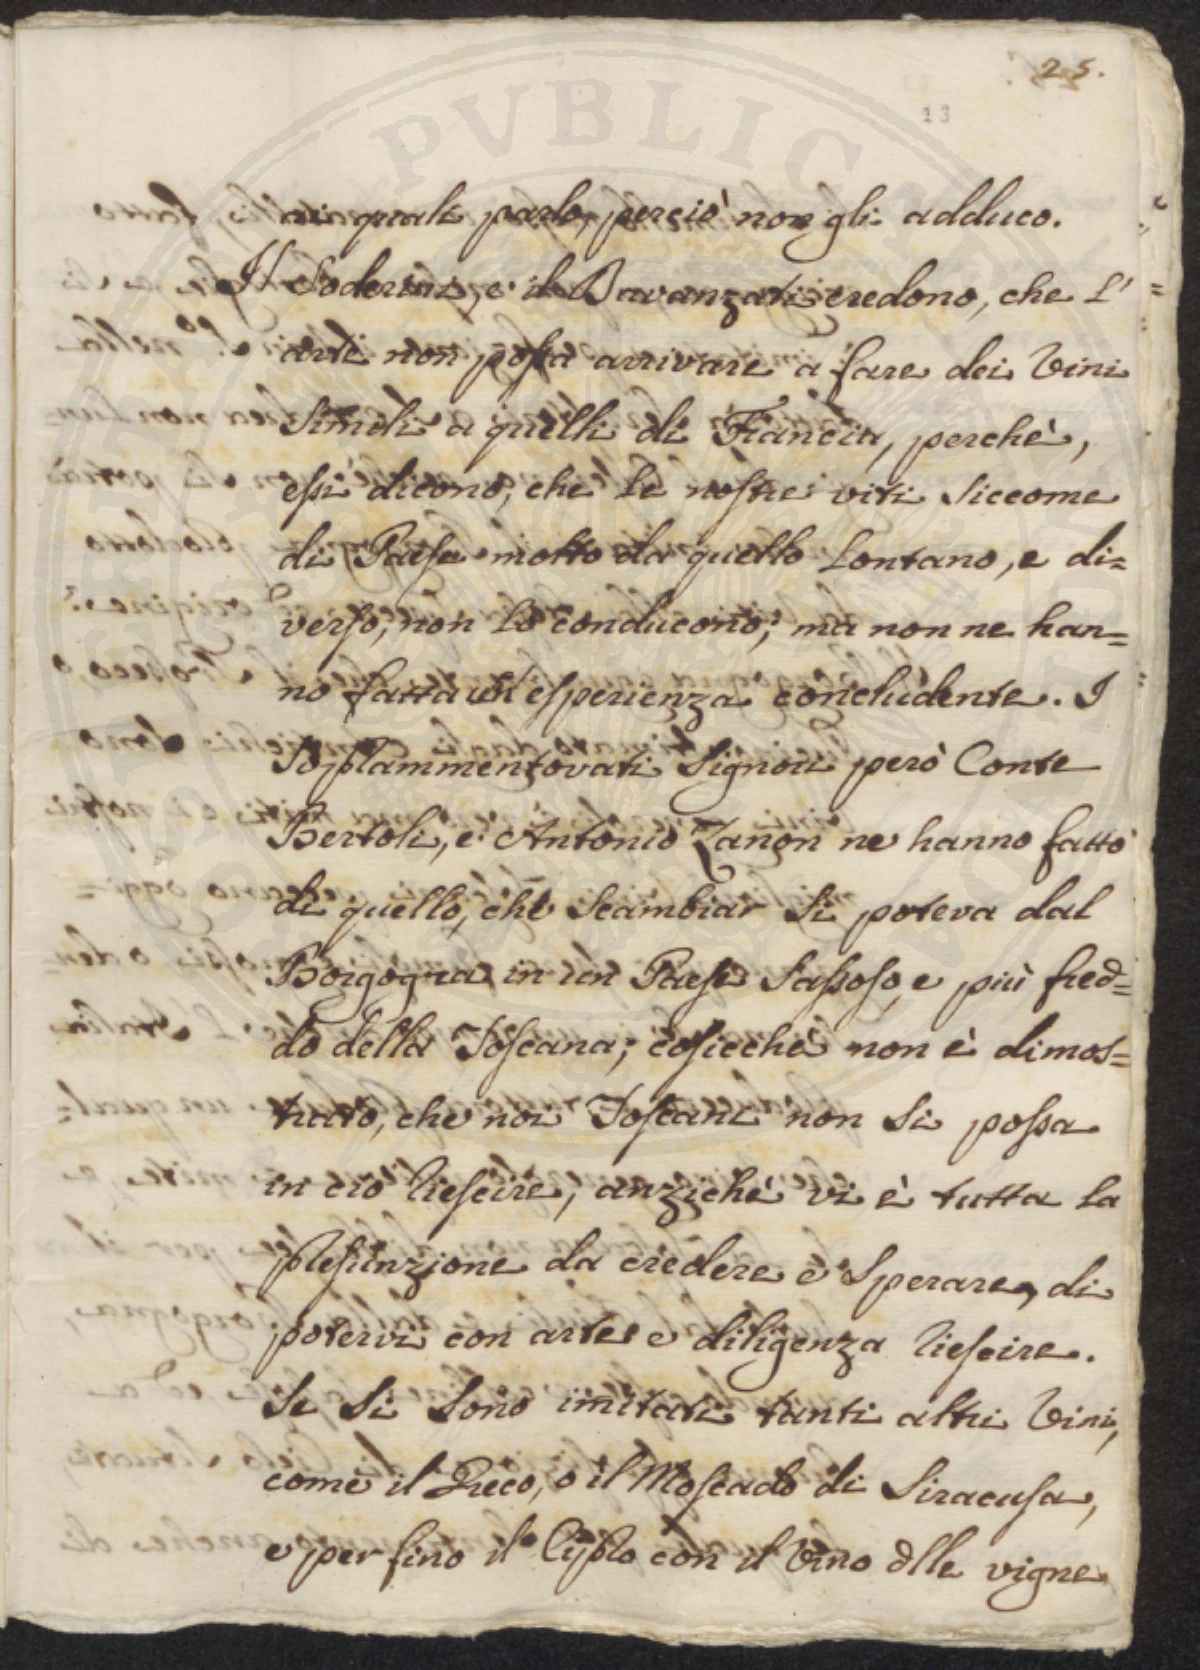 25.
13
ai quali parlo, perciò non gli adduco.
Il Soderini, e il Davanzati credono, che l'
arte non possa arrivare a fare dei Vini
simili a quelli di Francia, perchè,
essi dicono, che le nostre viti siccome
di Paese molto da quello Lontano, e di=
verso, non lo conducono; ma non ne han=
no fatta un esperienza concludente. I
soprammentovati Signori però Conte
Bertoli, e Antonio Zanon ne hanno fatto
di quello, che scambiar si poteva dal
Borgogna in un Paese sassoso, e più fred=
do della Toscana; cosicchè non è dimos=
trato, che noi Toscani non si possa
in ciò riescire, anzichè vi è tutta la
presunzione da credere e sperare, di
potervi con arte e diligenza riescire.
Se si sono imitati tanti altri Vini,
come il Greco, o il Moscado di Siracusa,
e per fino il Cipro con il Vino dlle vigne